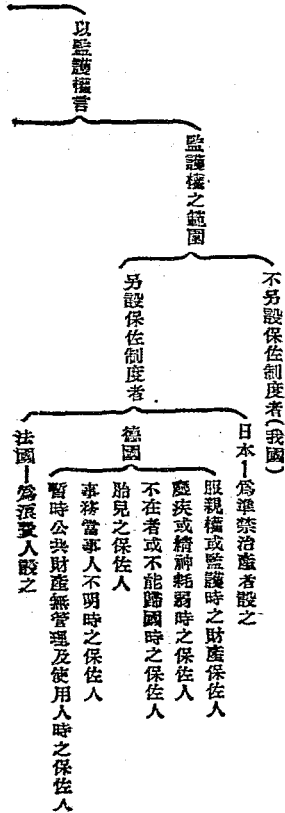 以監護權言
監護權之範圍
不另設保佐制度者(我國)
另設保佐制度者
日本—爲準禁治產者設之
德國
服親權或監護時之財產保佐人
廢疾或精神耗弱時之保佐人
不在者或不能歸國時之保佐人
胎兒之保佐人
事務當事人不明時之保佐人
暫時公共財產無管理及使用人時之保佐人
法國—爲浪費人設之